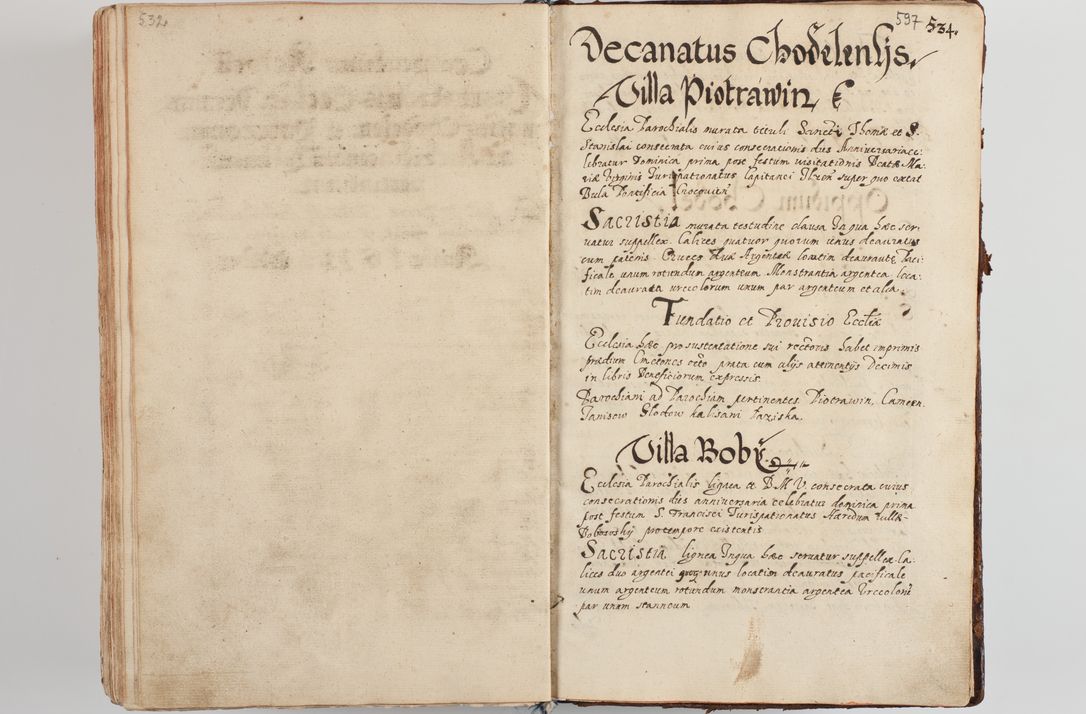 532.
597 534.
Decanatus Chodelensis.
Villa Piotrawin
Ecclesia Parochialis murata tituli Sancti Thomæ et S.
Stanislai consecrata cuius consecrationis dies Anniversaria ce:
lebratur Dominica prima post festum visitationis Beatæ Ma:
riæ Virginis Jurispatronatus Capitanei super quo extat
Bula Pontificia
Sacristia murata testudine clausa In qua hæc ser:
vatur suppellex. Calices quatuor quorum unus deauratus
cum patenis Cruces duæ Argenteæ locatim deauratæ Paci:
ficale unum rotundum argenteum Monstrantia argentea loca:
tim deaurata urceolorum unum par argenteum et alia.
Fundatio et Provisio Eccliæ
Ecclesia hæc pro sustentatione sui rectoris habet imprimis
prædium Cmetones octo prata cum alijs attinentijs Decimis
in libris Beneficiorum expressis.
Parochiani ad Parochiam pertinentes Piotrawin, Camien.
Janisow Głodow kalisani Paziska.
Villa Boby
Ecclesia Parochialis lignea et B. M. V. consecrata cuius
consecrationis dies anniversaria celebratur dominica prima
post festum S. Francisci Jurispatronatus Hæredum villæ
pro tempore existentis
Sacristia lignea In qua hæc servatur suppellex. Ca:
lices duo argentei unus locatim deauratus pacificale
unum argenteum rotundum monstrantia argentea Urceolorum
par unum stanneum